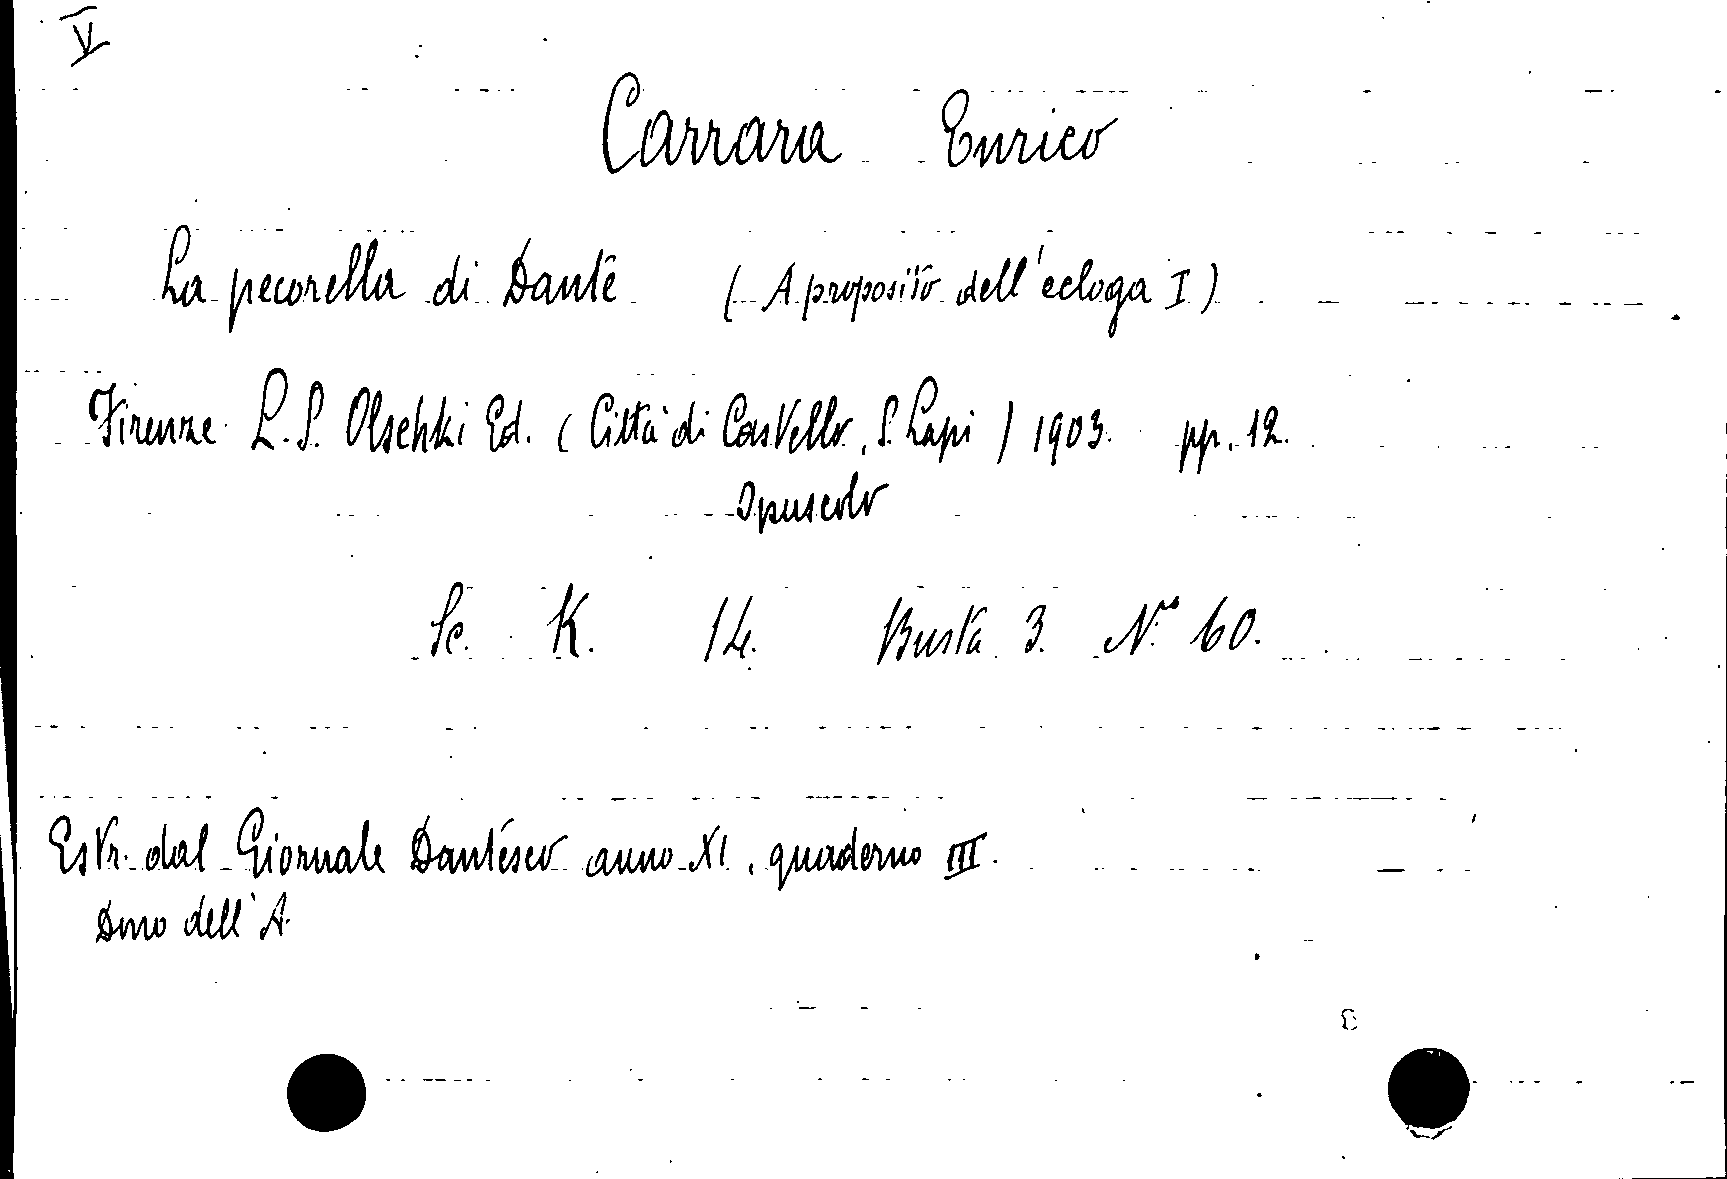 V
Carrara Enrico
La pecorella di Dante (A proposito dell'ecloga I)
Firenze L. S. Olschki Ed. (Città di Castello, S. Lapi) 1903. pp. 12.
Opuscolo
Sc. K. 14. Busta 3. N.º 60.
Estr. dal Giornale Dantesco anno XI, quaderno III.
Dono dell'A.